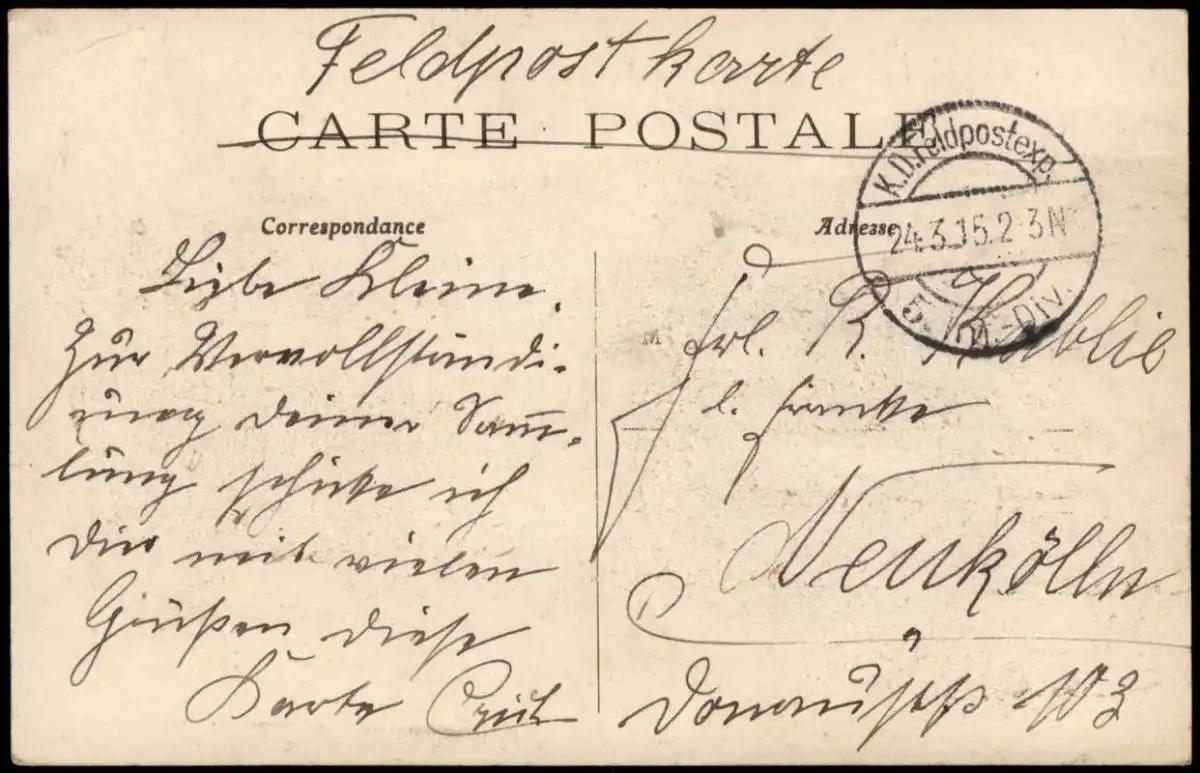 Feldpostkarte
CARTE POSTALE
Correspondance
Adresse
K.D. Feldpostexp.
24.3.15.2-3N
5. -Div.
Liebe Kleine.
Zur Vervollständi-
gung deiner Samm-
lung schicke ich
Dir mit vielen
Grüßen diese
Karte Erich
Frl. R.
b. Franke
Neukölln
Donaustr 103